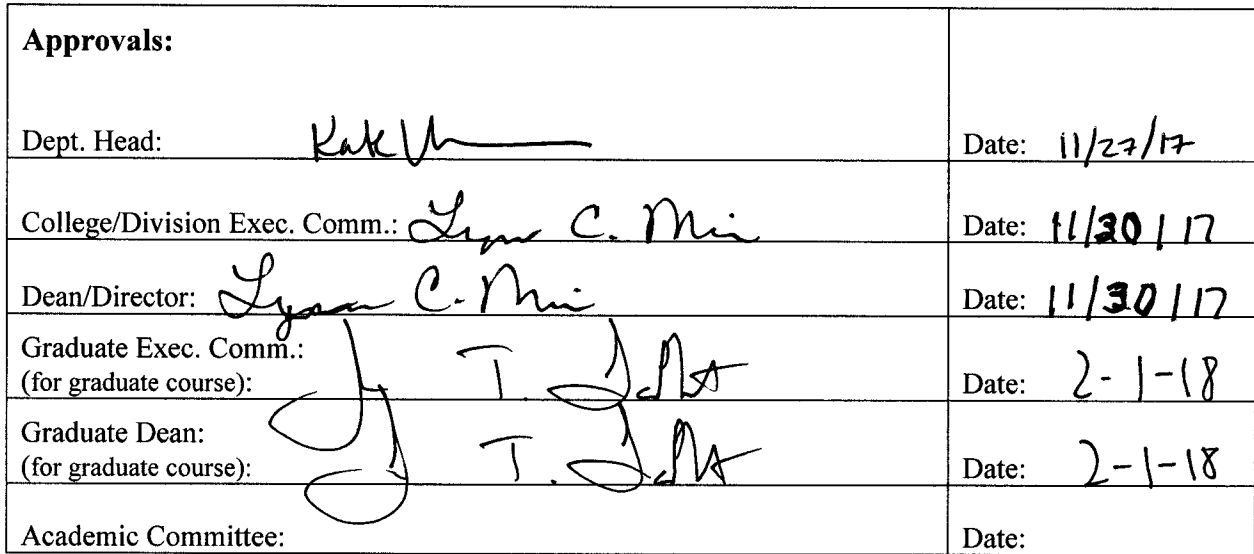 Approvals:
Dept. Head: Kate Date: 11/27/17
College/Division Exec. Comm.: C. Date: 11/30/17
Dean/Director: C. Date: 11/30/17
Graduate Exec. Comm.:
(for graduate course): T. Date: 2-1-18
Graduate Dean:
(for graduate course): T. Date: 2-1-18
Academic Committee: Date: